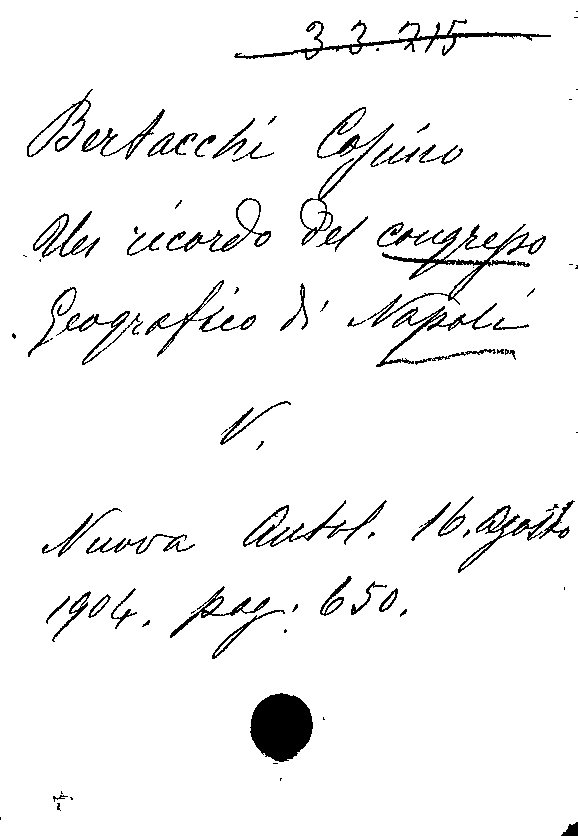 3 3. 215
Bertacchi Cosimo
Un ricordo del congresso
Geografico di Napoli
V.
Nuova Antol. 16. Agosto
1904. pag: 650.